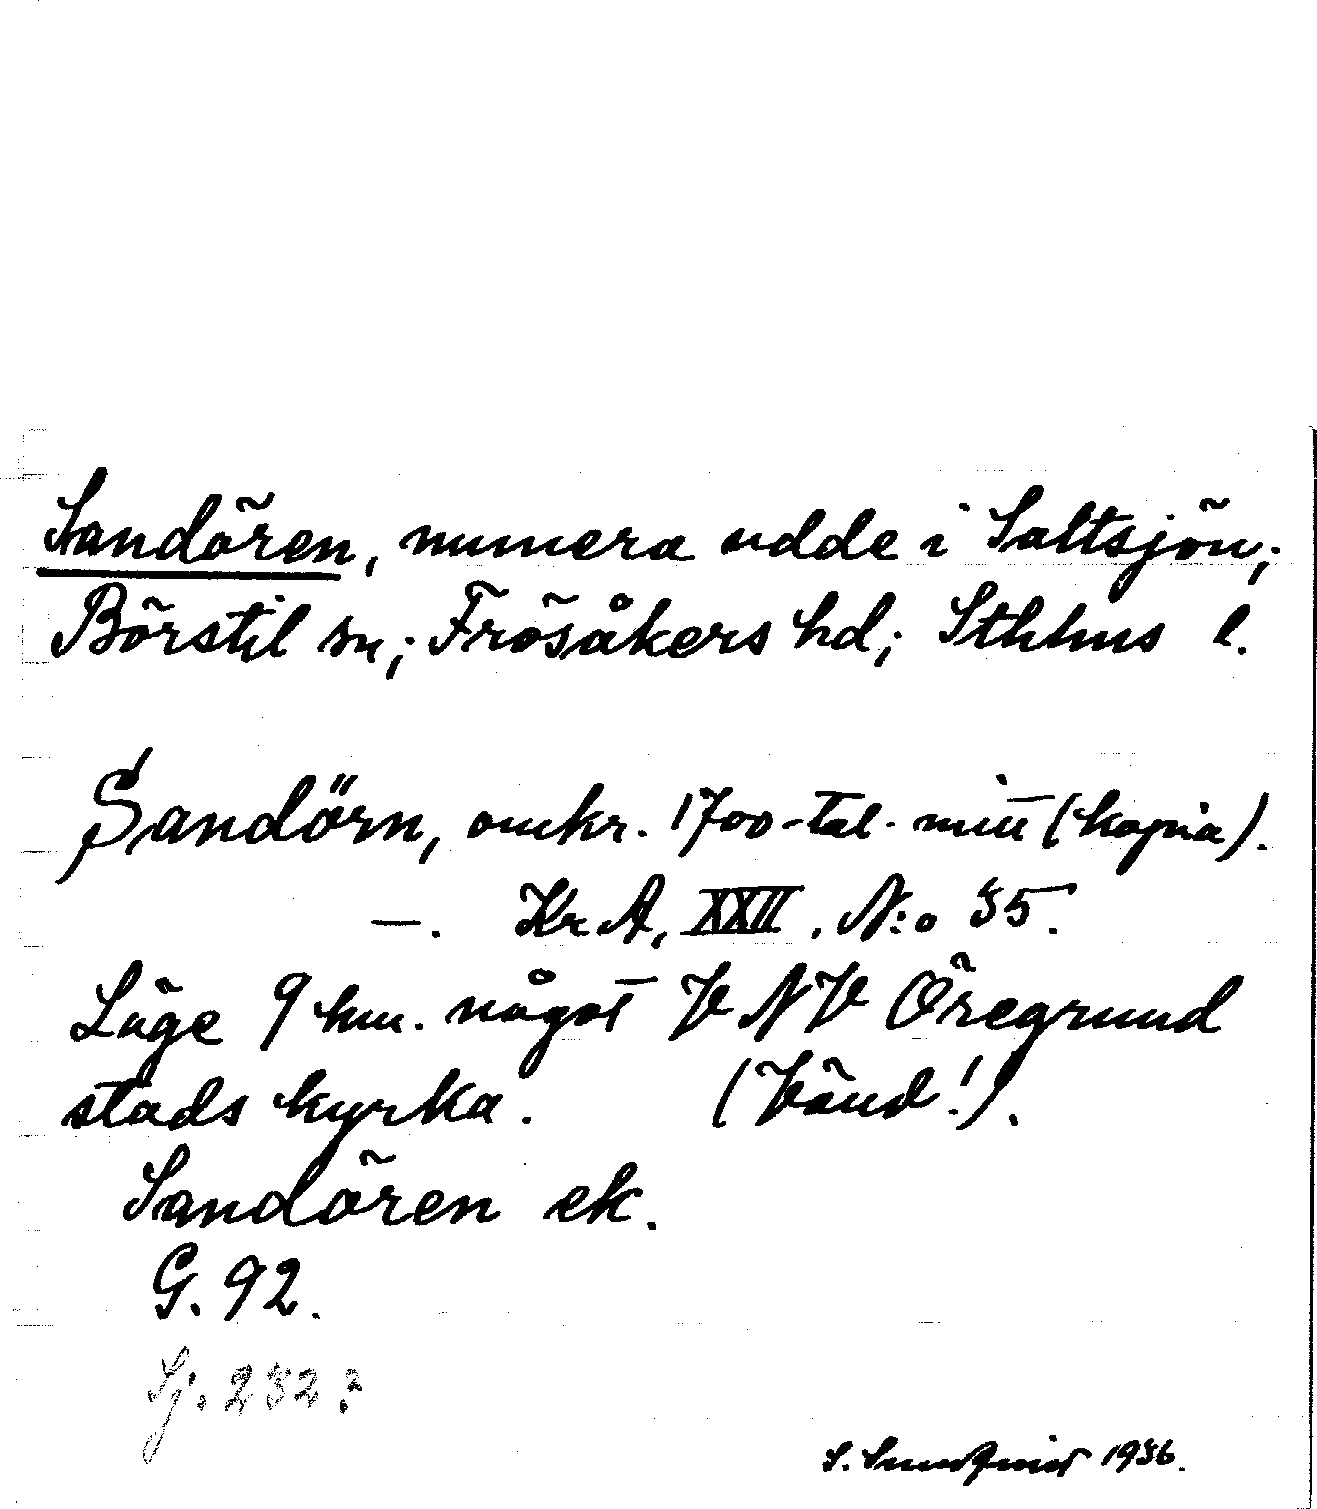 Sandören, numera udde i Saltsjön;
Börstil sn; Frösåkers hd; Sthlms l.
Sandörn, omkr. 1700-tal. mitt (kopia).
—. KrA, XXII. N:o 35.
Läge 9 km. något VNV Öregrund
stads kyrka. (Vänd!).
Sandören ek.
G. 92.
Sj. 232?
S. Sundqvist 1936.